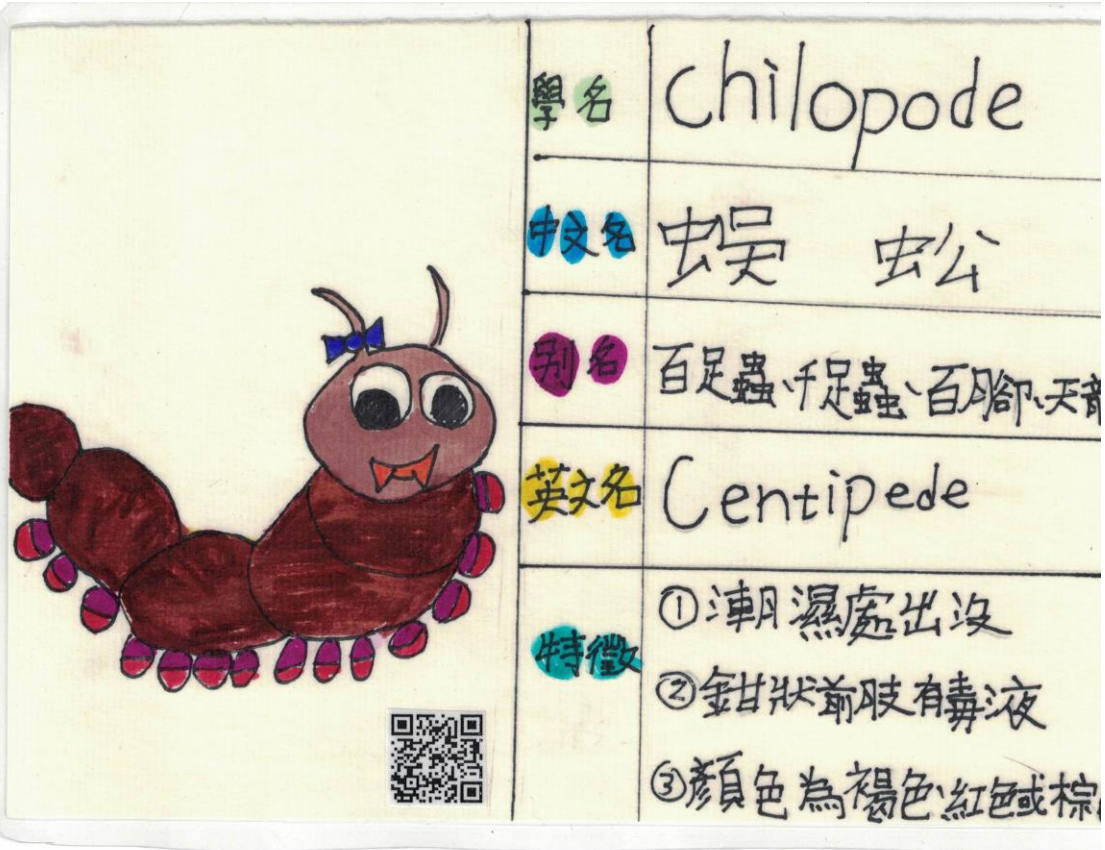 學名 Chilopode
中文名 蜈 蚣
别名 百足蟲、千足蟲、百腳、天龍
英文名 Centipede
特徵
①潮濕處出沒
②鉗狀前肢有毒液
③顏色為褐色、紅色或棕